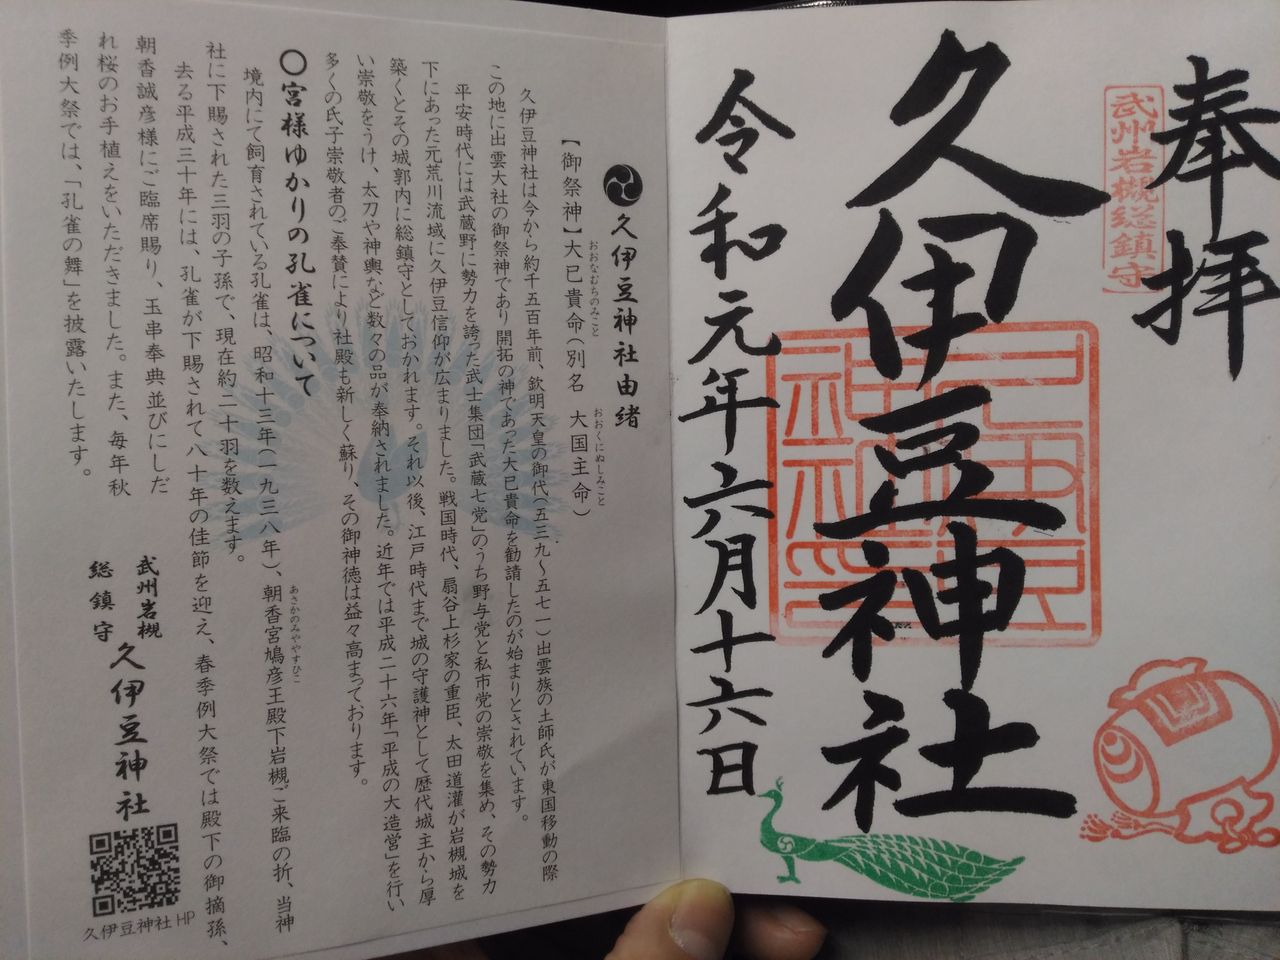 奉拝
武州岩槻総鎮守
久伊豆神社
令和元年六月十六日
久伊豆神社由緒
【御祭神】大已貴命(別名 大国主命)
おおなむちのみこと
おおくにぬしみこと
久伊豆神社は今から約千五百年前、欽明天皇の御代(五三九~五七一)出雲族の土師氏が東国移動の際
この地に出雲大社の御祭神であり開拓の神であった大已貴命を勧請したのが始まりとされています。
平安時代には武蔵野に勢力を誇った武士集団「武蔵七党」のうち野与党と私市党の崇敬を集め、その勢力
下にあった元荒川流域に久伊豆信仰が広まりました。戦国時代、扇谷上杉家の重臣、太田道灌が岩槻城を
築くとその城郭内に総鎮守としておかれます。それ以後、江戸時代まで城の守護神として歴代城主から厚
い崇敬をうけ、太刀や神輿など数々の品が奉納されました。近年では平成二十六年「平成の大造営」を行い
多くの氏子崇敬者のご奉賛により社殿も新しく蘇り、その御神徳は益々高まっております。
〇宮様ゆかりの孔雀について
境内にて飼育されている孔雀は、昭和十三年(一九三八年)、朝香宮鳩彦王殿下岩槻ご来臨の折、当神
あさかのみややすひこ
社に下賜された三羽の子孫で、現在約二十羽を数えます。
去る平成三十年には、孔雀が下賜されて八十年の佳節を迎え、春季例大祭では殿下の御摘孫、
朝香誠彦様にご臨席賜り、玉串奉典並びにしだ
れ桜のお手植えをいただきました。また、毎年秋
季例大祭では、「孔雀の舞」を披露いたします。
武州岩槻
総鎮守
久伊豆神社
久伊豆神社 HP